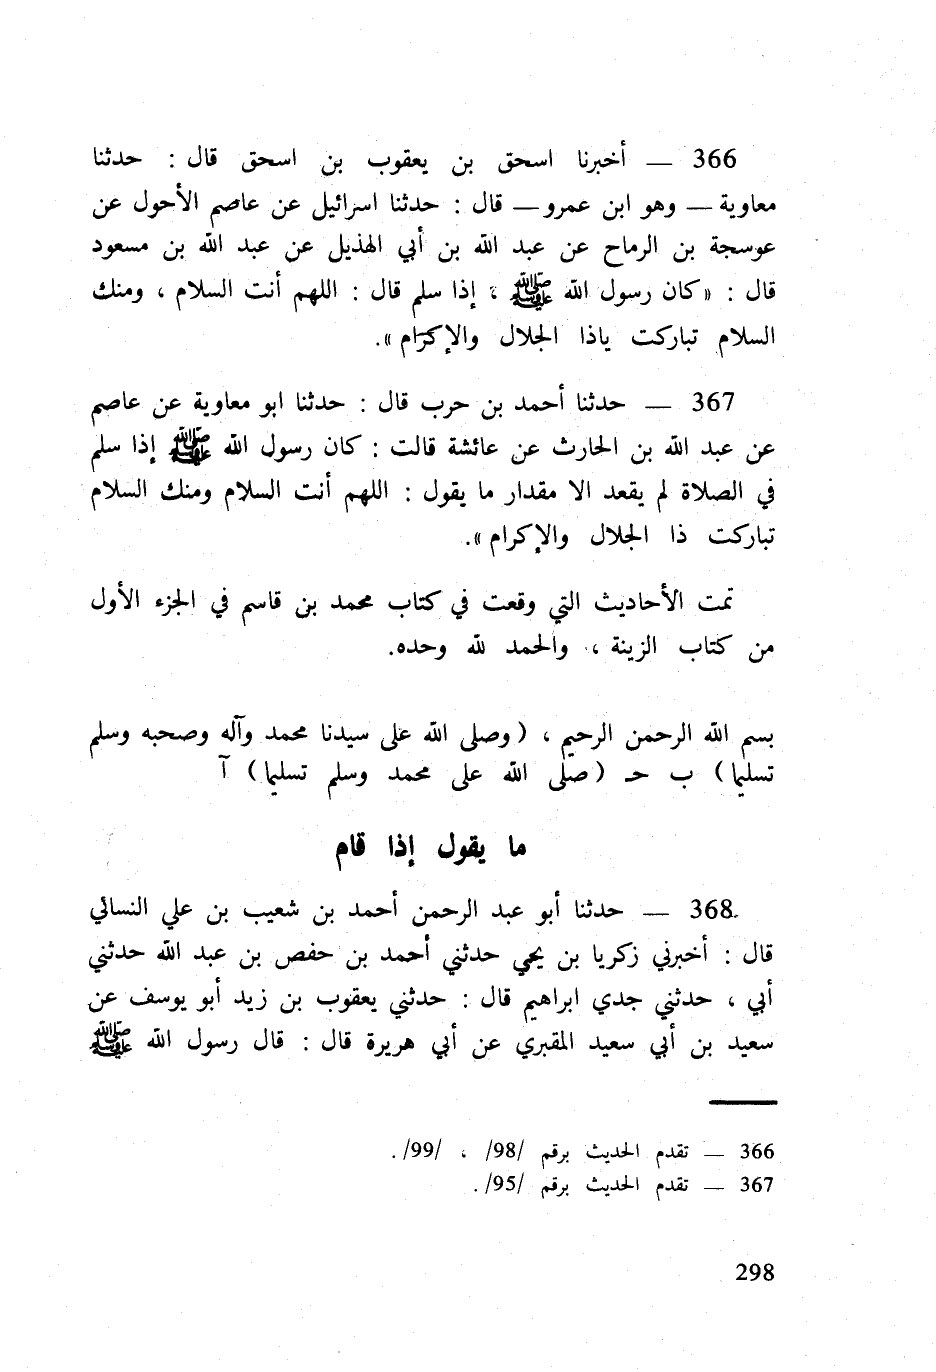 366 — أخبرنا اسحق بن يعقوب بن اسحق قال : حدثنا
معاوية — وهو ابن عمرو — قال : حدثنا اسرائيل عن عاصم الأحول عن
عوسجة بن الرماح عن عبد الله بن أبي الهذيل عن عبد الله بن مسعود
قال : «كان رسول الله ﷺ ، إذا سلم قال : اللهم أنت السلام ، ومنك
السلام تباركت ياذا الجلال والإكرام ».
367 — حدثنا أحمد بن حرب قال : حدثنا ابو معاوية عن عاصم
عن عبد الله بن الحارث عن عائشة قالت : كان رسول الله ﷺ إذا سلم
في الصلاة لم يقعد الا مقدار ما يقول : اللهم أنت السلام ومنك السلام
تباركت ذا الجلال والإكرام ».
تمت الأحاديث التي وقعت في كتاب محمد بن قاسم في الجزء الأول
من كتاب الزينة ، والحمد لله وحده.
بسم الله الرحمن الرحيم ، ( وصلى الله على سيدنا محمد وآله وصحبه وسلم
تسليما ) ب حـ ( صلى الله على محمد وسلم تسليما ) آ
ما يقول إذا قام
368 — حدثنا أبو عبد الرحمن أحمد بن شعيب بن علي النسائي
قال : أخبرني زكريا بن يحيي حدثني أحمد بن حفص بن عبد الله حدثني
أبي ، حدثني جدي ابراهيم قال : حدثني يعقوب بن زيد أبو يوسف عن
سعيد بن أبي سعيد المقبري عن أبي هريرة قال : قال رسول الله ﷺ
366 — تقدم الحديث برقم /98/ ، /99/ .
367 — تقدم الحديث برقم /95/ .
298